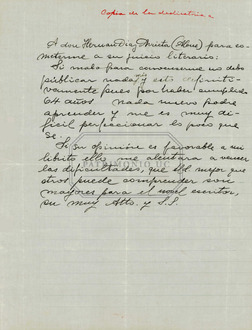 Copia de la dedicatoria
A don Hernán Díaz Arrieta (Alone) para so-
meterme a su juicio literario:
Si malo fuera convenme no debo
publicar nada y esto definiti-
vamente pues por haber cumplido
64 años nada nuevo podré
aprender y me es muy di-
fícil perfeccionar lo poco que
sé.
Si su opinión es favorable a mi
librito ello me alentará a vencer
las dificultades, que Ud mejor que
otros puede comprender son
mayores para el novel escritor,
su muy Atto. y S.S.
PATRIMONIO UC